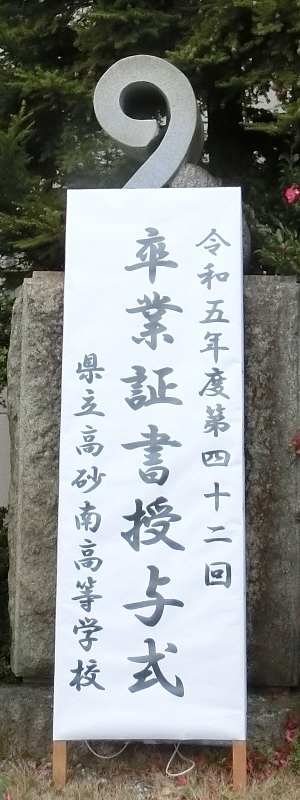 令和五年度第四十二回
卒業証書授与式
県立高砂南高等学校